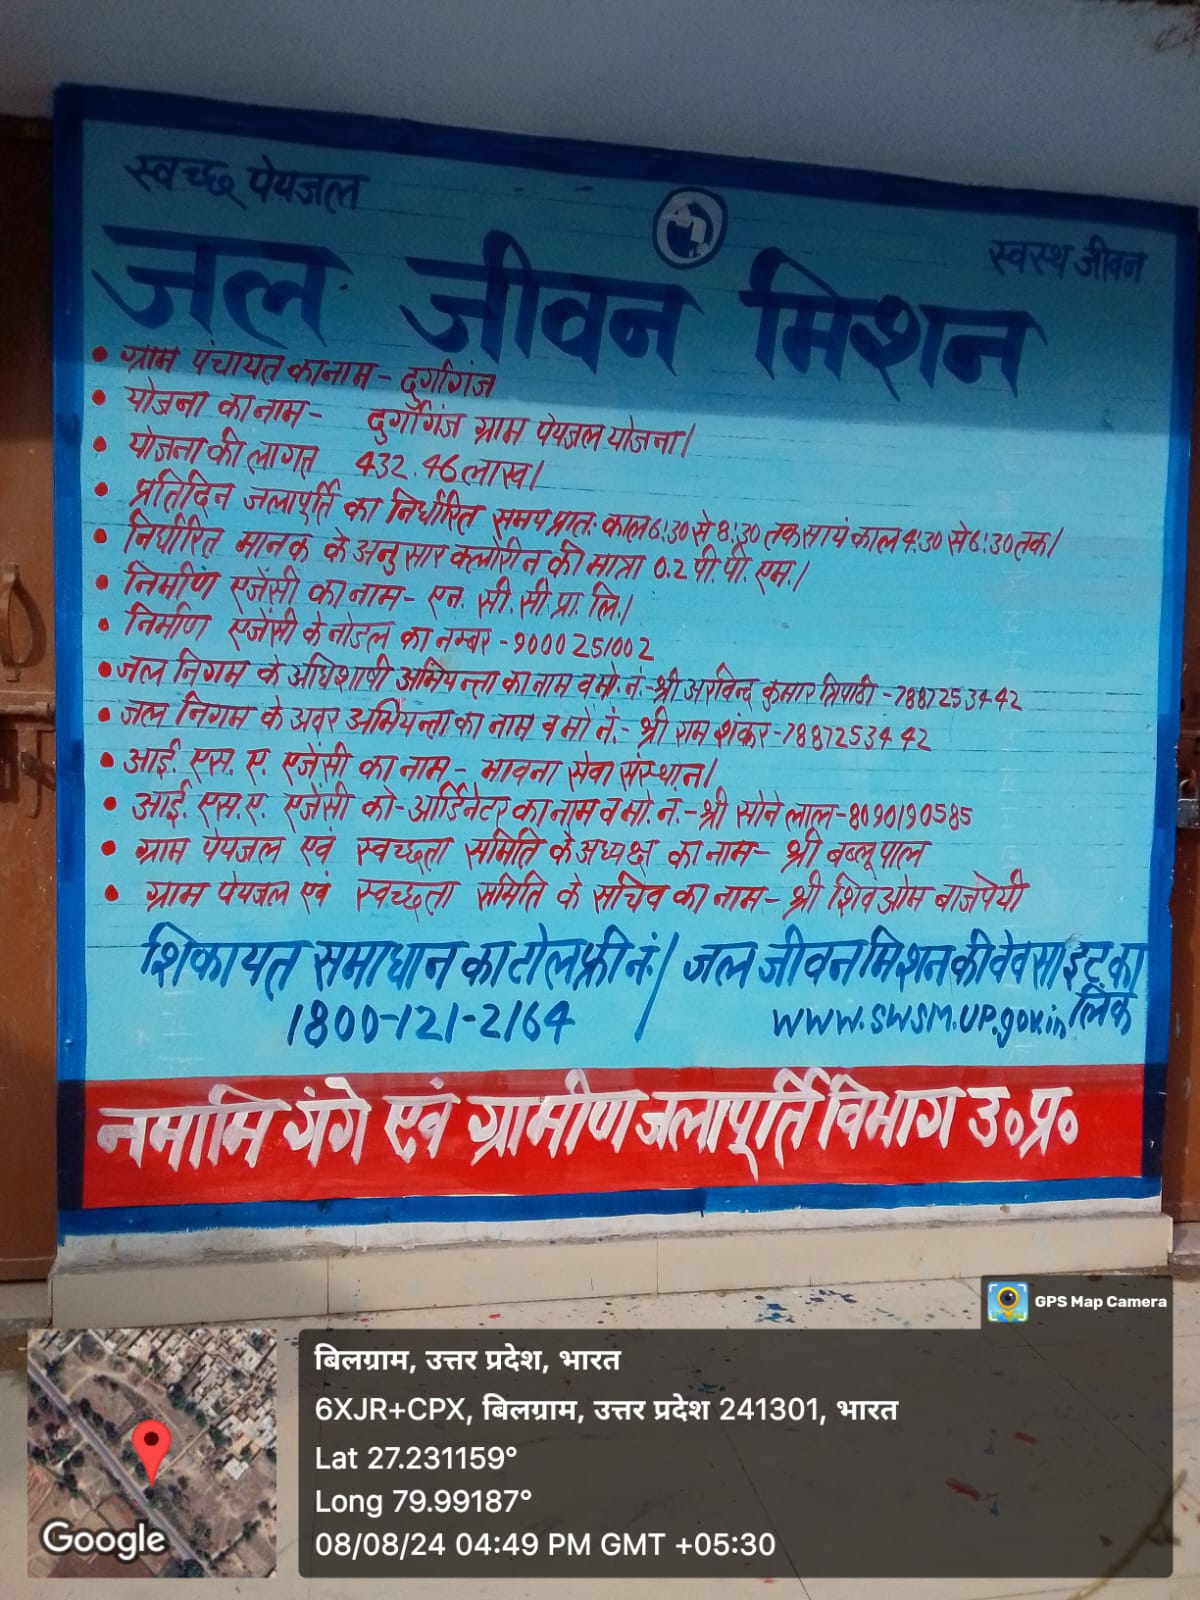 स्वच्छ पेयजल
स्वस्थ जीवन
जल जीवन मिशन
• ग्राम पंचायत का नाम - दुर्गागंज
• योजना का नाम - दुर्गागंज ग्राम पेयजल योजना।
• योजना की लागत 432.46 लाख।
• प्रतिदिन जलापूर्ति का निर्धारित समय प्रातः काल 6:30 से 8:30 तक सायं काल 4:30 से 6:30 तक।
• निर्धारित मानक के अनुसार क्लोरीन की मात्रा 0.2 पी.पी. एम.।
• निर्माण एजेंसी का नाम - एन. सी. सी. प्रा. लि.।
• निर्माण एजेंसी के नोडल का नम्बर - 9000251002
• जल निगम के अधिशाषी अभियन्ता का नाम व मो. नं. - श्री अरविन्द कुमार त्रिपाठी - 7887253442
• जल निगम के अवर अभियन्ता का नाम व मो नं. - श्री राम शंकर - 7887253442
• आई. एस. ए. एजेंसी का नाम - भावना सेवा संस्थान।
• आई. एस. ए. एजेंसी को-आर्डिनेटर का नाम व मो. नं. - श्री सोने लाल - 8090190585
• ग्राम पेयजल एवं स्वच्छता समिति के अध्यक्ष का नाम - श्री बब्लू पाल
• ग्राम पेयजल एवं स्वच्छता समिति के सचिव का नाम - श्री शिव ओम बाजपेयी
शिकायत समाधान का टोल फ्री नं. / जल जीवन मिशन की वेव साइट का लिंक
1800-121-2164 / www.swsm.up.gov.in
नमामि गंगे एवं ग्रामीण जलापूर्ति विभाग उ॰प्र॰
GPS Map Camera
बिलग्राम, उत्तर प्रदेश, भारत
6XJR+CPX, बिलग्राम, उत्तर प्रदेश 241301, भारत
Lat 27.231159°
Long 79.99187°
08/08/24 04:49 PM GMT +05:30
Google